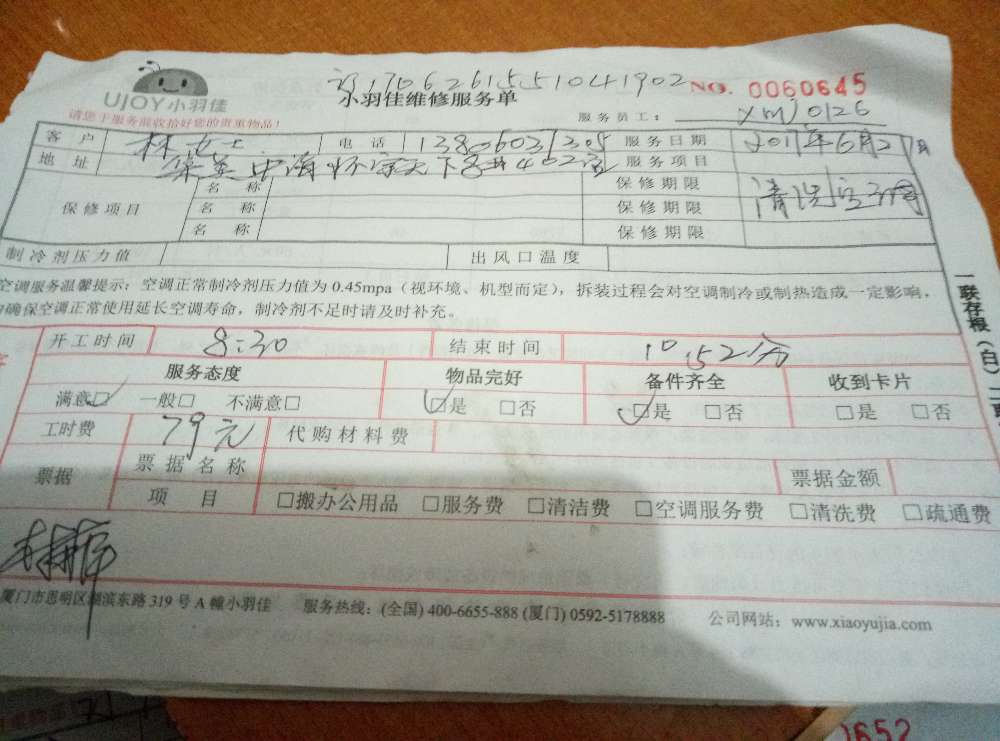 17062615551041902
UJOY小羽佳
小羽佳维修服务单
NO. 0060645
请您于服务前收拾好您的贵重物品!
服务员工: xmj0126
客户 林女士 电话 服务日期 2017年6月27日
地址 服务项目
保修项目 名称 保修期限 清洗空调
名称 保修期限
名称 保修期限
制冷剂压力值 出风口温度
空调服务温馨提示:空调正常制冷剂压力值为0.45mpa(视环境、机型而定),拆装过程会对空调制冷或制热造成一定影响,
确保空调正常使用延长空调寿命,制冷剂不足时请及时补充。
开工时间 8:30 结束时间 10.52分
服务态度 物品完好 备件齐全 收到卡片
满意☑ 一般□ 不满意□ ☑是 □否 ☑是 □否 □是 □否
工时费 79元 代购材料费
票据 票据名称 票据金额
项目 □搬办公用品 □服务费 □清洁费 □空调服务费 □清洗费 □疏通费
厦门市思明区湖滨东路319号A幢小羽佳 服务热线:(全国) 400-6655-888 (厦门) 0592-5178888 公司网站:www.xiaoyujia.com
一联存根(白)二
0652